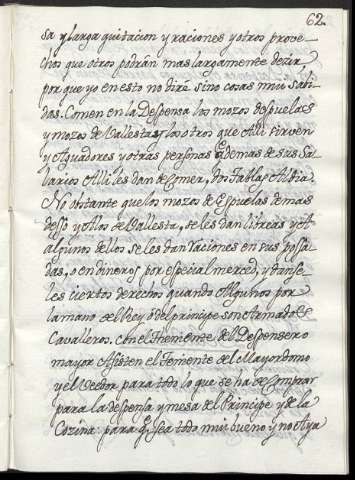 62.
sa y larga quitacion y raciones y otros prove-
chos que otros podrán mas largamente dezir
por que yo en esto no diré sino cosas mui sabi-
das. Comen en la Despensa los mozos de espuelas
y mozos de Ballesta y los otros que Alli sirven
y Aguadores y otras personas q̃ demas de sus Sa-
larios Alli les dan de Comer, dos Tablas Al dia
No obstante que los mozos de Espuelas demas
desso y ellos de Ballesta, se les dan libreas y A
algunos dellos se les dan Raciones en sus posa-
das, o en dineros por especial merced, y danse
les ciertos derechos quando Algunos por
la mano del Rey ó del principe son Armados
Cavalleros. con el Theniente del Despensero
mayor Assisten el Teniente del Mayordomo
y el Veedor para todo lo que se ha de Comprar
para la despensa y mesa del Principe y de la
Cozina para q̃ sea todo mui bueno y no Aya